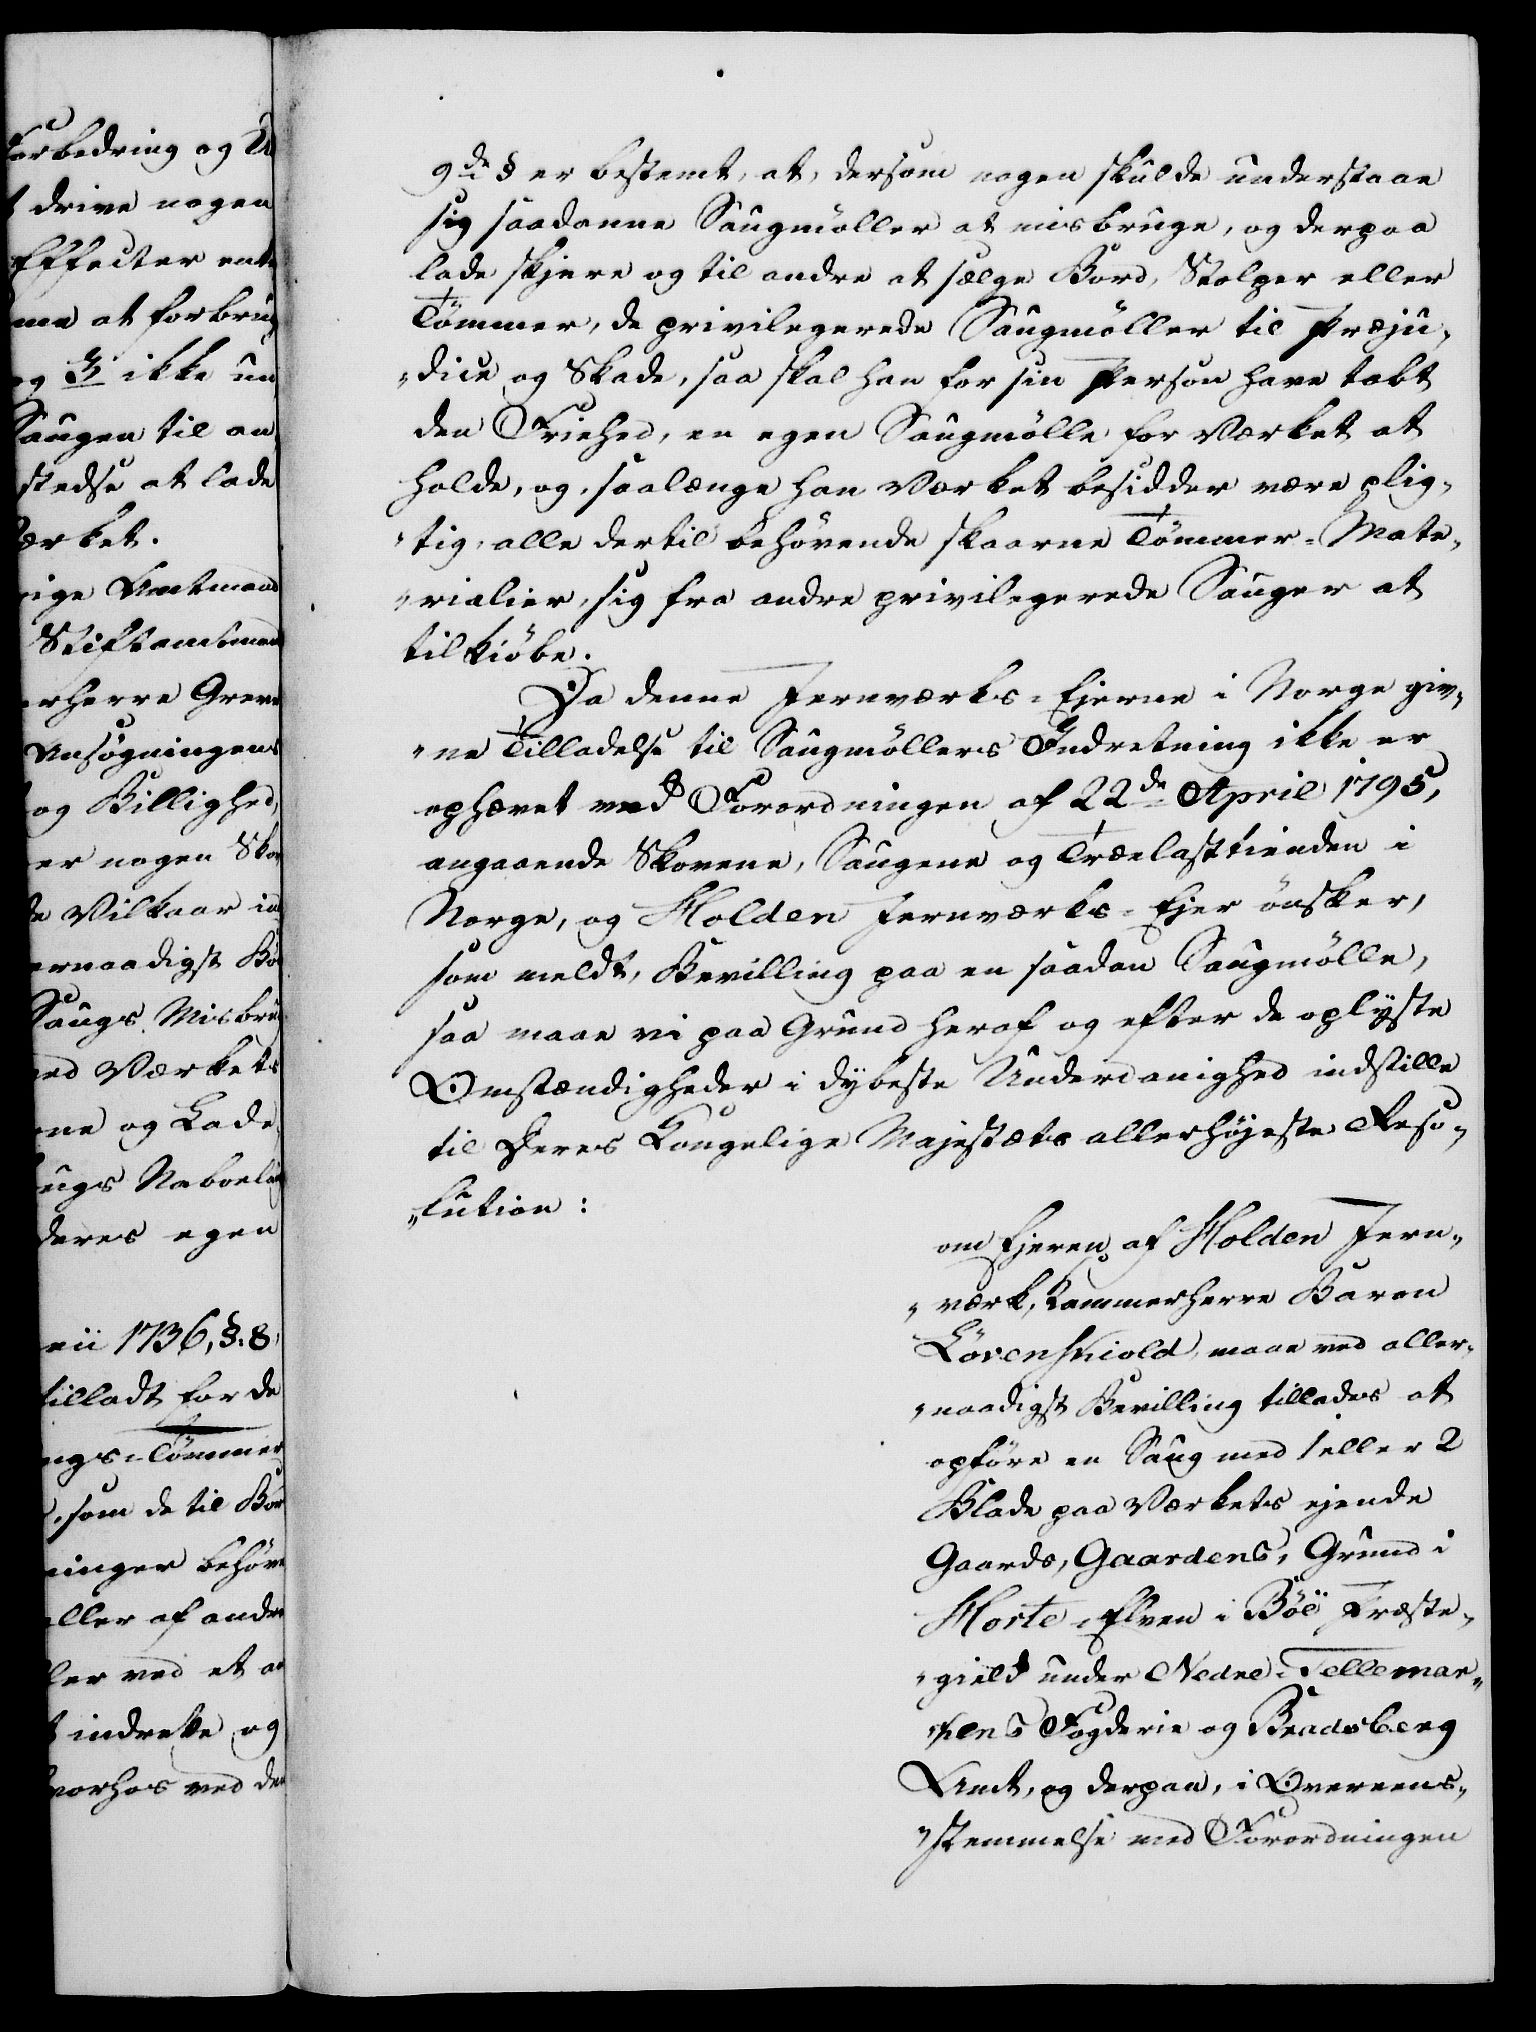 Forbedring og
t drive nogen
Effecter
me at forbru
og 3 ikke un
Saugen til an
stedse at lade
ærket.
rige Amtmand
Stiftamtmand
rherre Greve
Ansøgningens
og Billighed,
er nogen Skov
de Vilkaar
ernaadigst
Saugs Misbru
ed Værkets
ne og Lade
ugs Naboelaug
deres egen
nii 1736, §. 8,
tilladt for de
ngs-Tømmer
, som de til
ninger behøve
eller af andre
ler ved et
t indrette og
hvorhos ved den
9de § er bestemt, at, dersom nogen skulde understaae
sig saadanne Saugmøller at misbruge, og derpaa
lade skjere og til andre at sælge Bord, Stolper eller
Tömmer, de privilegerede Saugmöller til Præju-
"dice og Skade, saa skal han for sin Person have tabt
den Friehed, en egen Saugmölle for Værket at
holde, og, saalænge han Værket besidder være plig-
"tig, alle dertil behövende skaarne Tömmer-Mate-
"rialier, sig fra andre privilegerede Sauger at
tilkiöbe.
Da denne Jernværks-Ejerne i Norge giv-
"ne Tilladelse til Saugmöllers Indretning ikke er
ophævet ved Forordningen af 22de April 1795,
angaaende Skovene, Saugene og Trælasttienden i
Norge, og Holden Jernværks-Ejer önsker,
som meldt, Bevilling paa en saadan Saugmölle,
saa maae vi paa Grund heraf og efter de oplyste
Omstændigheder i dybeste Underdanighed indstille
til Deres Kongelige Majestæts allerhöjeste Reso-
"lution:
om Ejeren af Holden Jern-
"værk, Kammerherre Baron
Lövenskiold, maae ved aller-
"naadigst Bevilling tillades at
opföre en Saug med 1 eller 2
Blade paa Værkets ejende
Gaards, Gaardens, Grund i
Horte-Elven i Böe Præste-
"gield under Nedre-Tellemar-
"kens Fogderie og Bradsberg
Amt, og derpaa, i Overeens-
"stemmelse med Forordningen